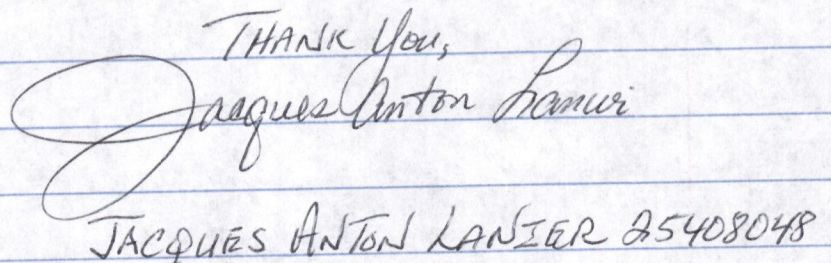 THANK You,
Jacques Anton Lanier
JACQUES ANTON LANIER 25408048